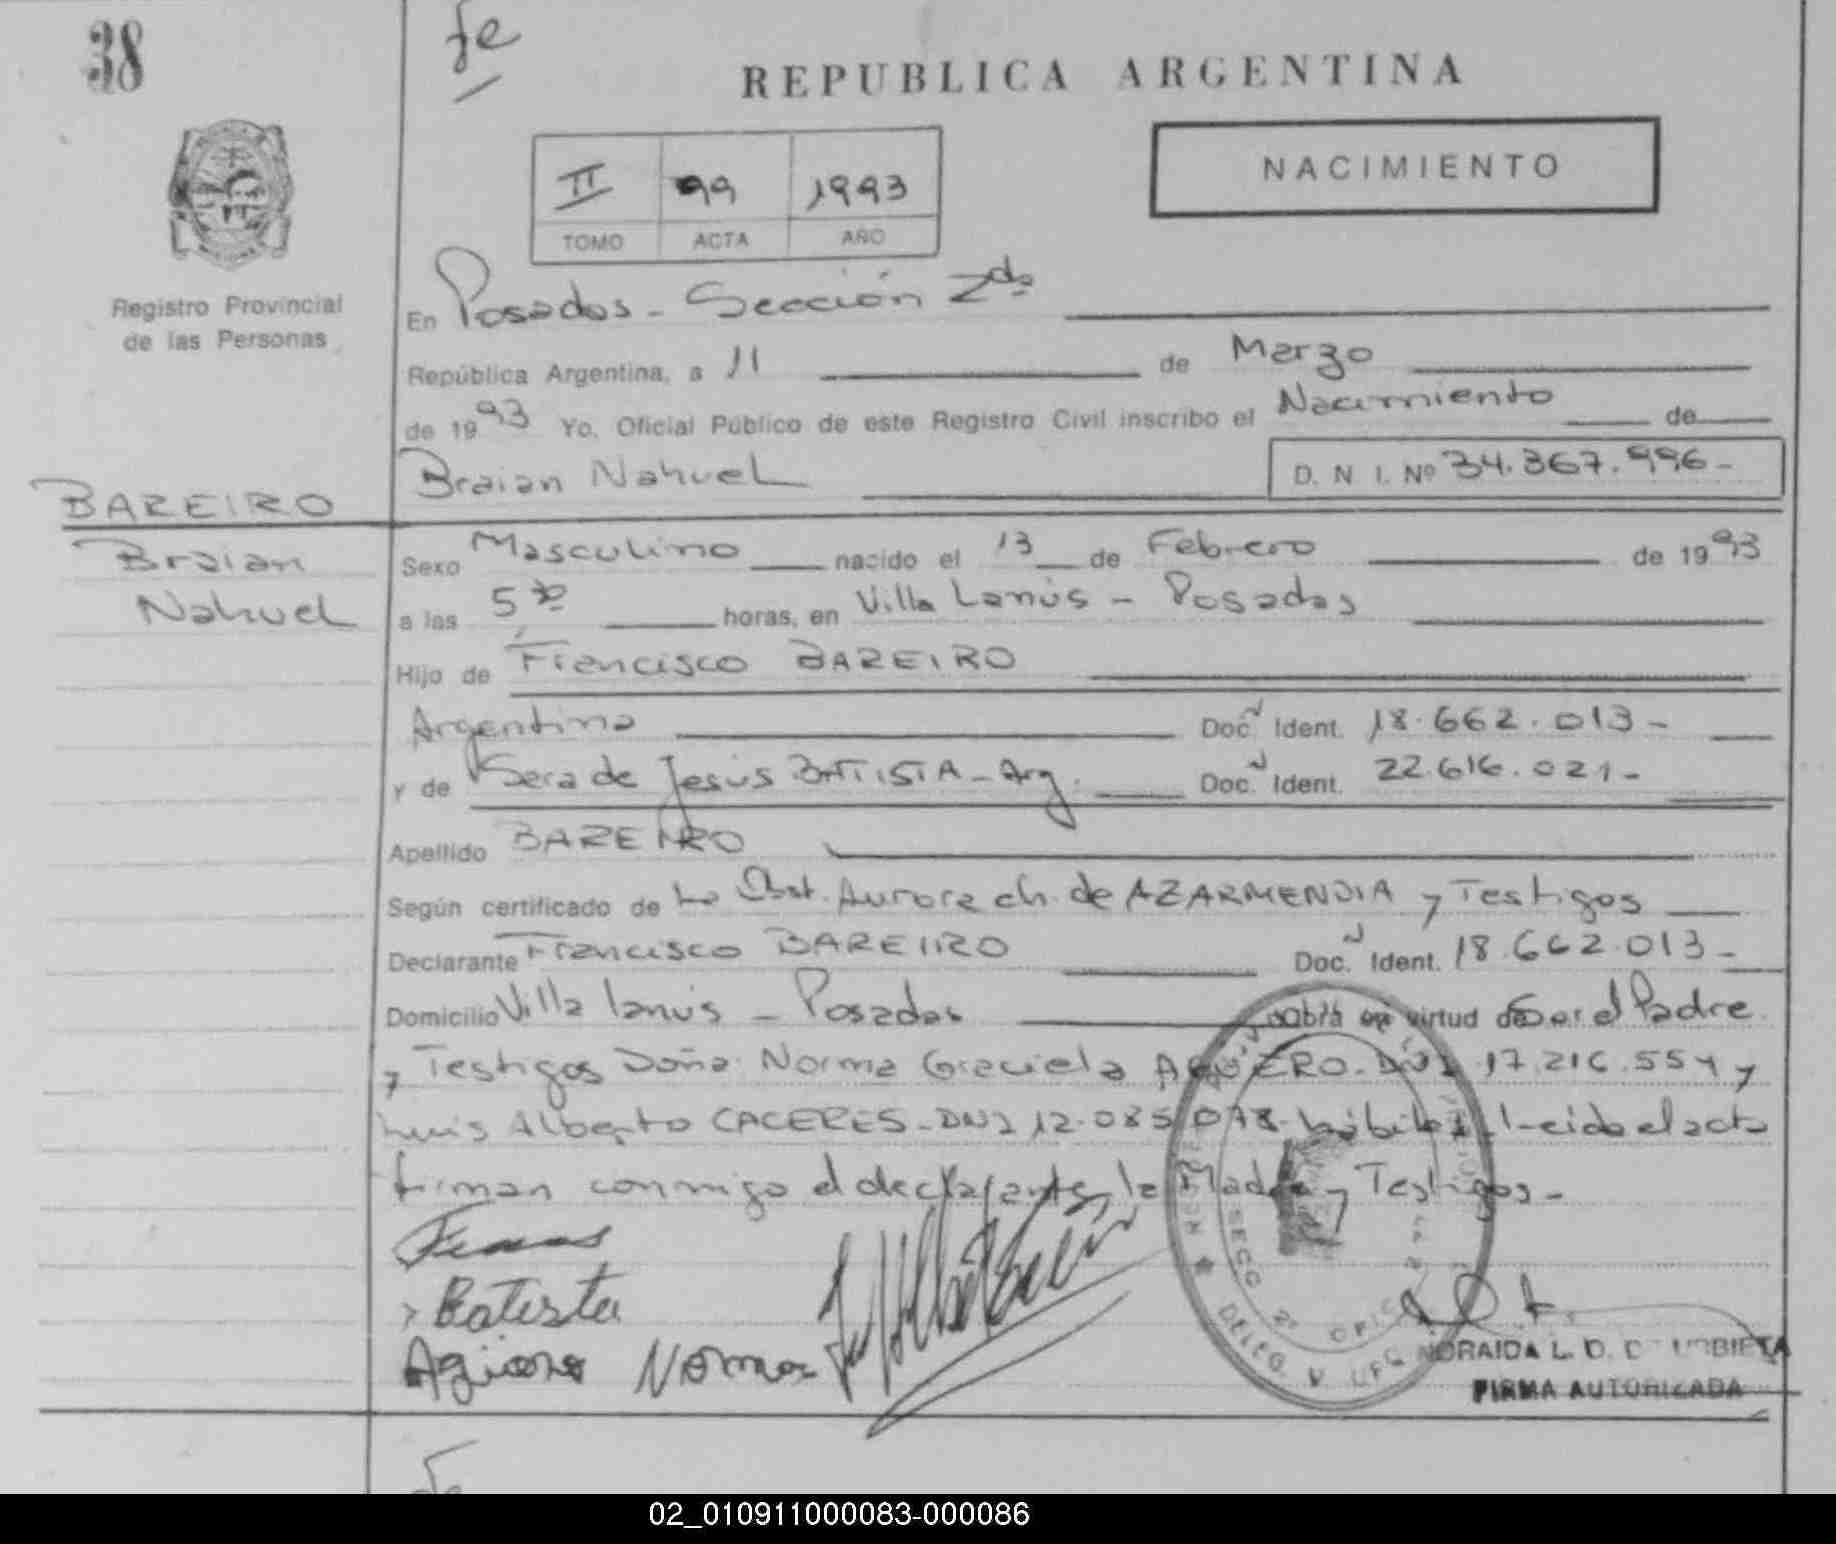 38
fe
REPUBLICA ARGENTINA
NACIMIENTO
II 99 1993
TOMO ACTA AÑO
Registro Provincial
de las Personas
En Posadas - Sección 2da
República Argentina, a 11 de Marzo
de 1993 Yo, Oficial Público de este Registro Civil inscribo el Nacimiento de
Braian Nahuel D. N. I. Nº 34.367.996-
BAREIRO
Braian
Nahuel
Sexo Masculino nacido el 13 de Febrero de 1993
a las 5 horas, en Villa Lanús - Posadas
Hijo de Francisco BAREIRO
Argentino Doc. Ident. 18.662.013-
y de Sera de Jesús BATISTA - Arg. Doc. Ident. 22.616.021-
Apellido BAREIRO
Según certificado de La Obst. Aurora ch. de AZARMENDIA y Testigos
Declarante Francisco BAREIRO Doc. Ident. 18.662.013-
Domicilio Villa Lanús - Posadas obra en virtud de Ser el Padre
y Testigos Doña Norma Graciela AGÜERO. DNI 17.216.554 y
Luis Alberto CACERES - DNI 12.085.078- hábiles. Leída el acta
firman conmigo el declarante, la Madre y Testigos -
Batista
Norma
SECC 2ª
DELEG.
NORAIDA L. D.
FIRMA AUTORIZADA
02_010911000083-000086